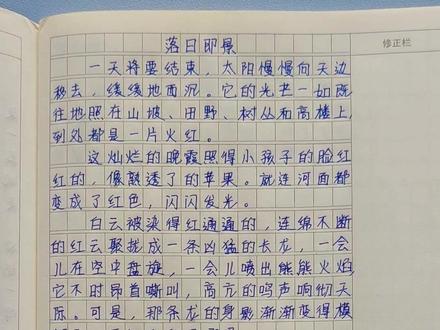 落日即景
修正栏
一天将要结束，太阳慢慢向天边
移去，缓缓地西沉。它的光芒一如既
往地照在山坡、田野、树丛和高楼上，
到处都是一片火红。
这灿烂的晚霞照得小孩子的脸红
红的，像熟透了的苹果。就连河面都
变成了红色，闪闪发光。
白云被染得红通通的，连绵不断
的红云聚拢成一条凶猛的长龙，一会
儿在空中盘旋，一会儿喷出熊熊火焰，
它不时昂首嘶叫，高亢的鸣声响彻天
际。可是，那条龙的身影渐渐变得模